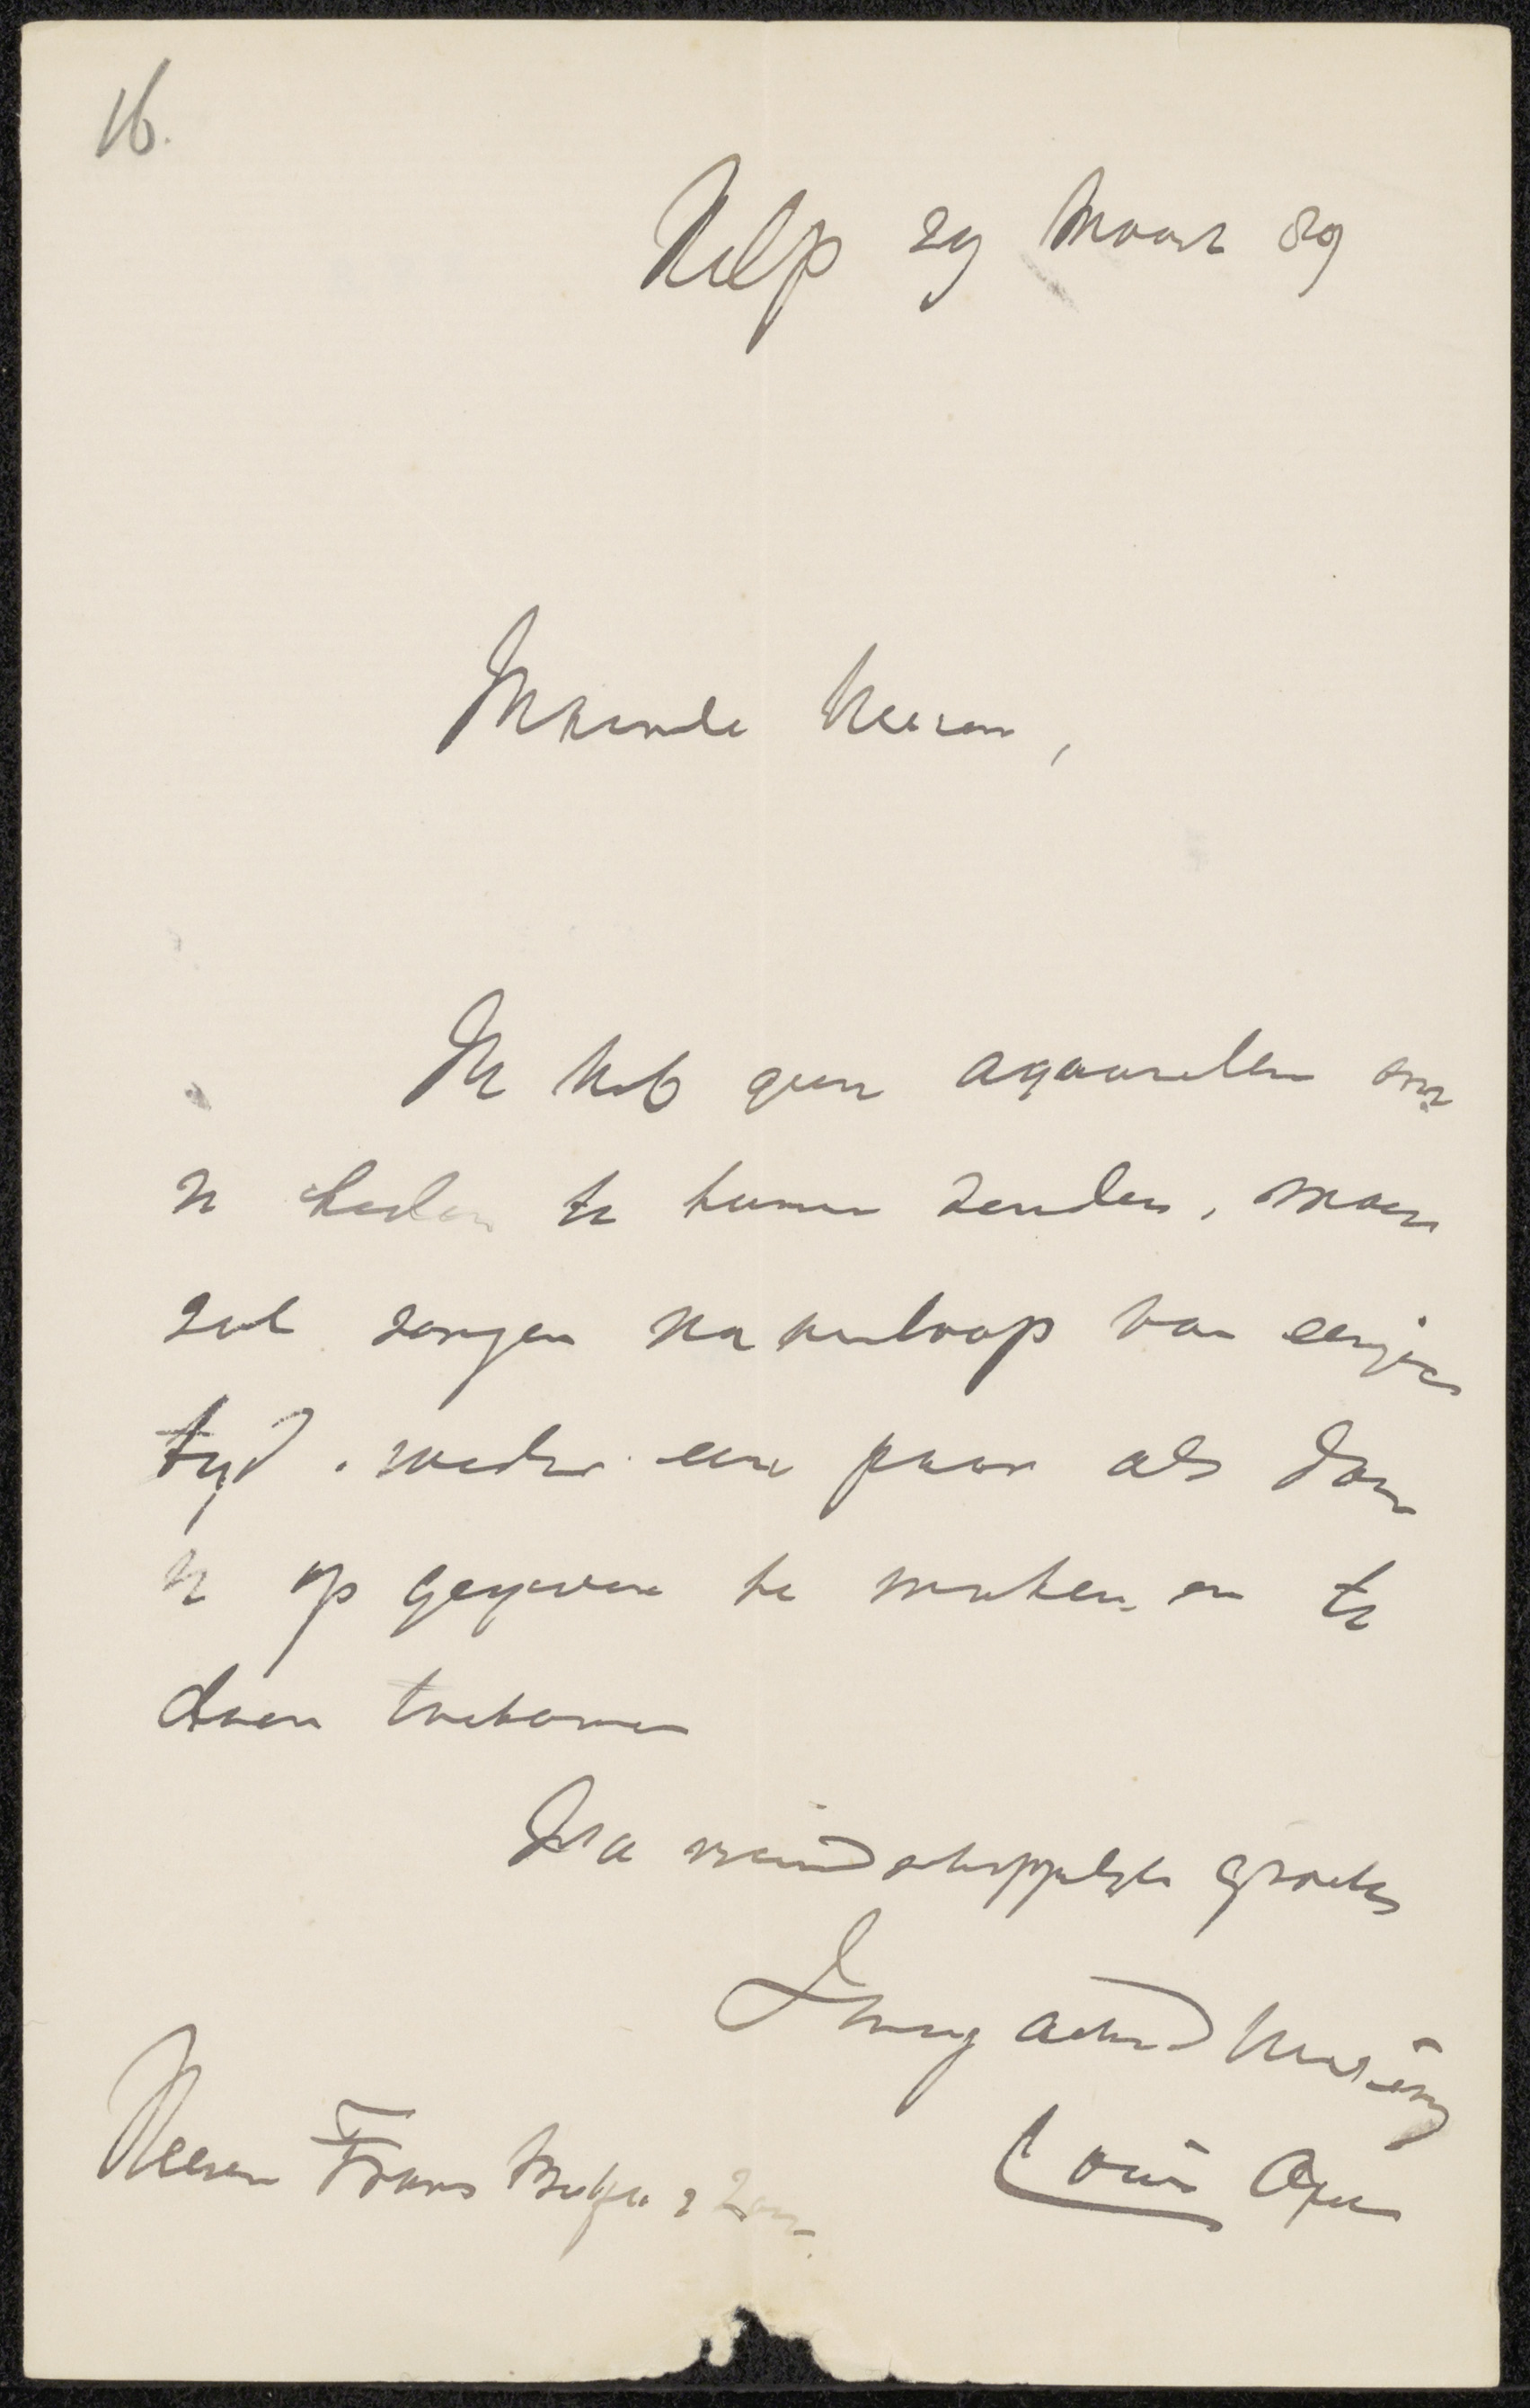 16.
Velp 29 Maart 89
Waarde Heeren,
Ik heb geen aquarellen om
U heden te kunnen zenden, maar
zal zorgen na verloop van eenigen
tijd weder een paar als dan
U op gegeven te maken en te
doen toekomen
Na vriendschappelijke groeten
Hoogachtend
Louis Apol
Heeren Frans Buffa & Zon